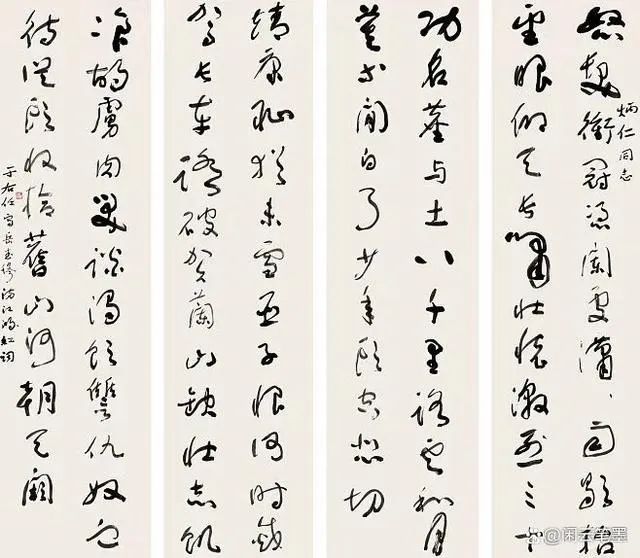 炳仁同志
怒髮衝冠憑闌處瀟、雨歇抬
望眼仰天長嘯壯懷激烈三十
功名塵与土八千里路雲和月
莫等閒白了少年頭空悲切
靖康恥猶未雪臣子恨何時滅
駕長車踏破賀蘭山缺壯志飢
飡胡虜肉笑談渴飲讐仇奴血
待從頭收拾舊山河朝天闕
于右任書岳武穆滿江紅詞
@闲云笔墨